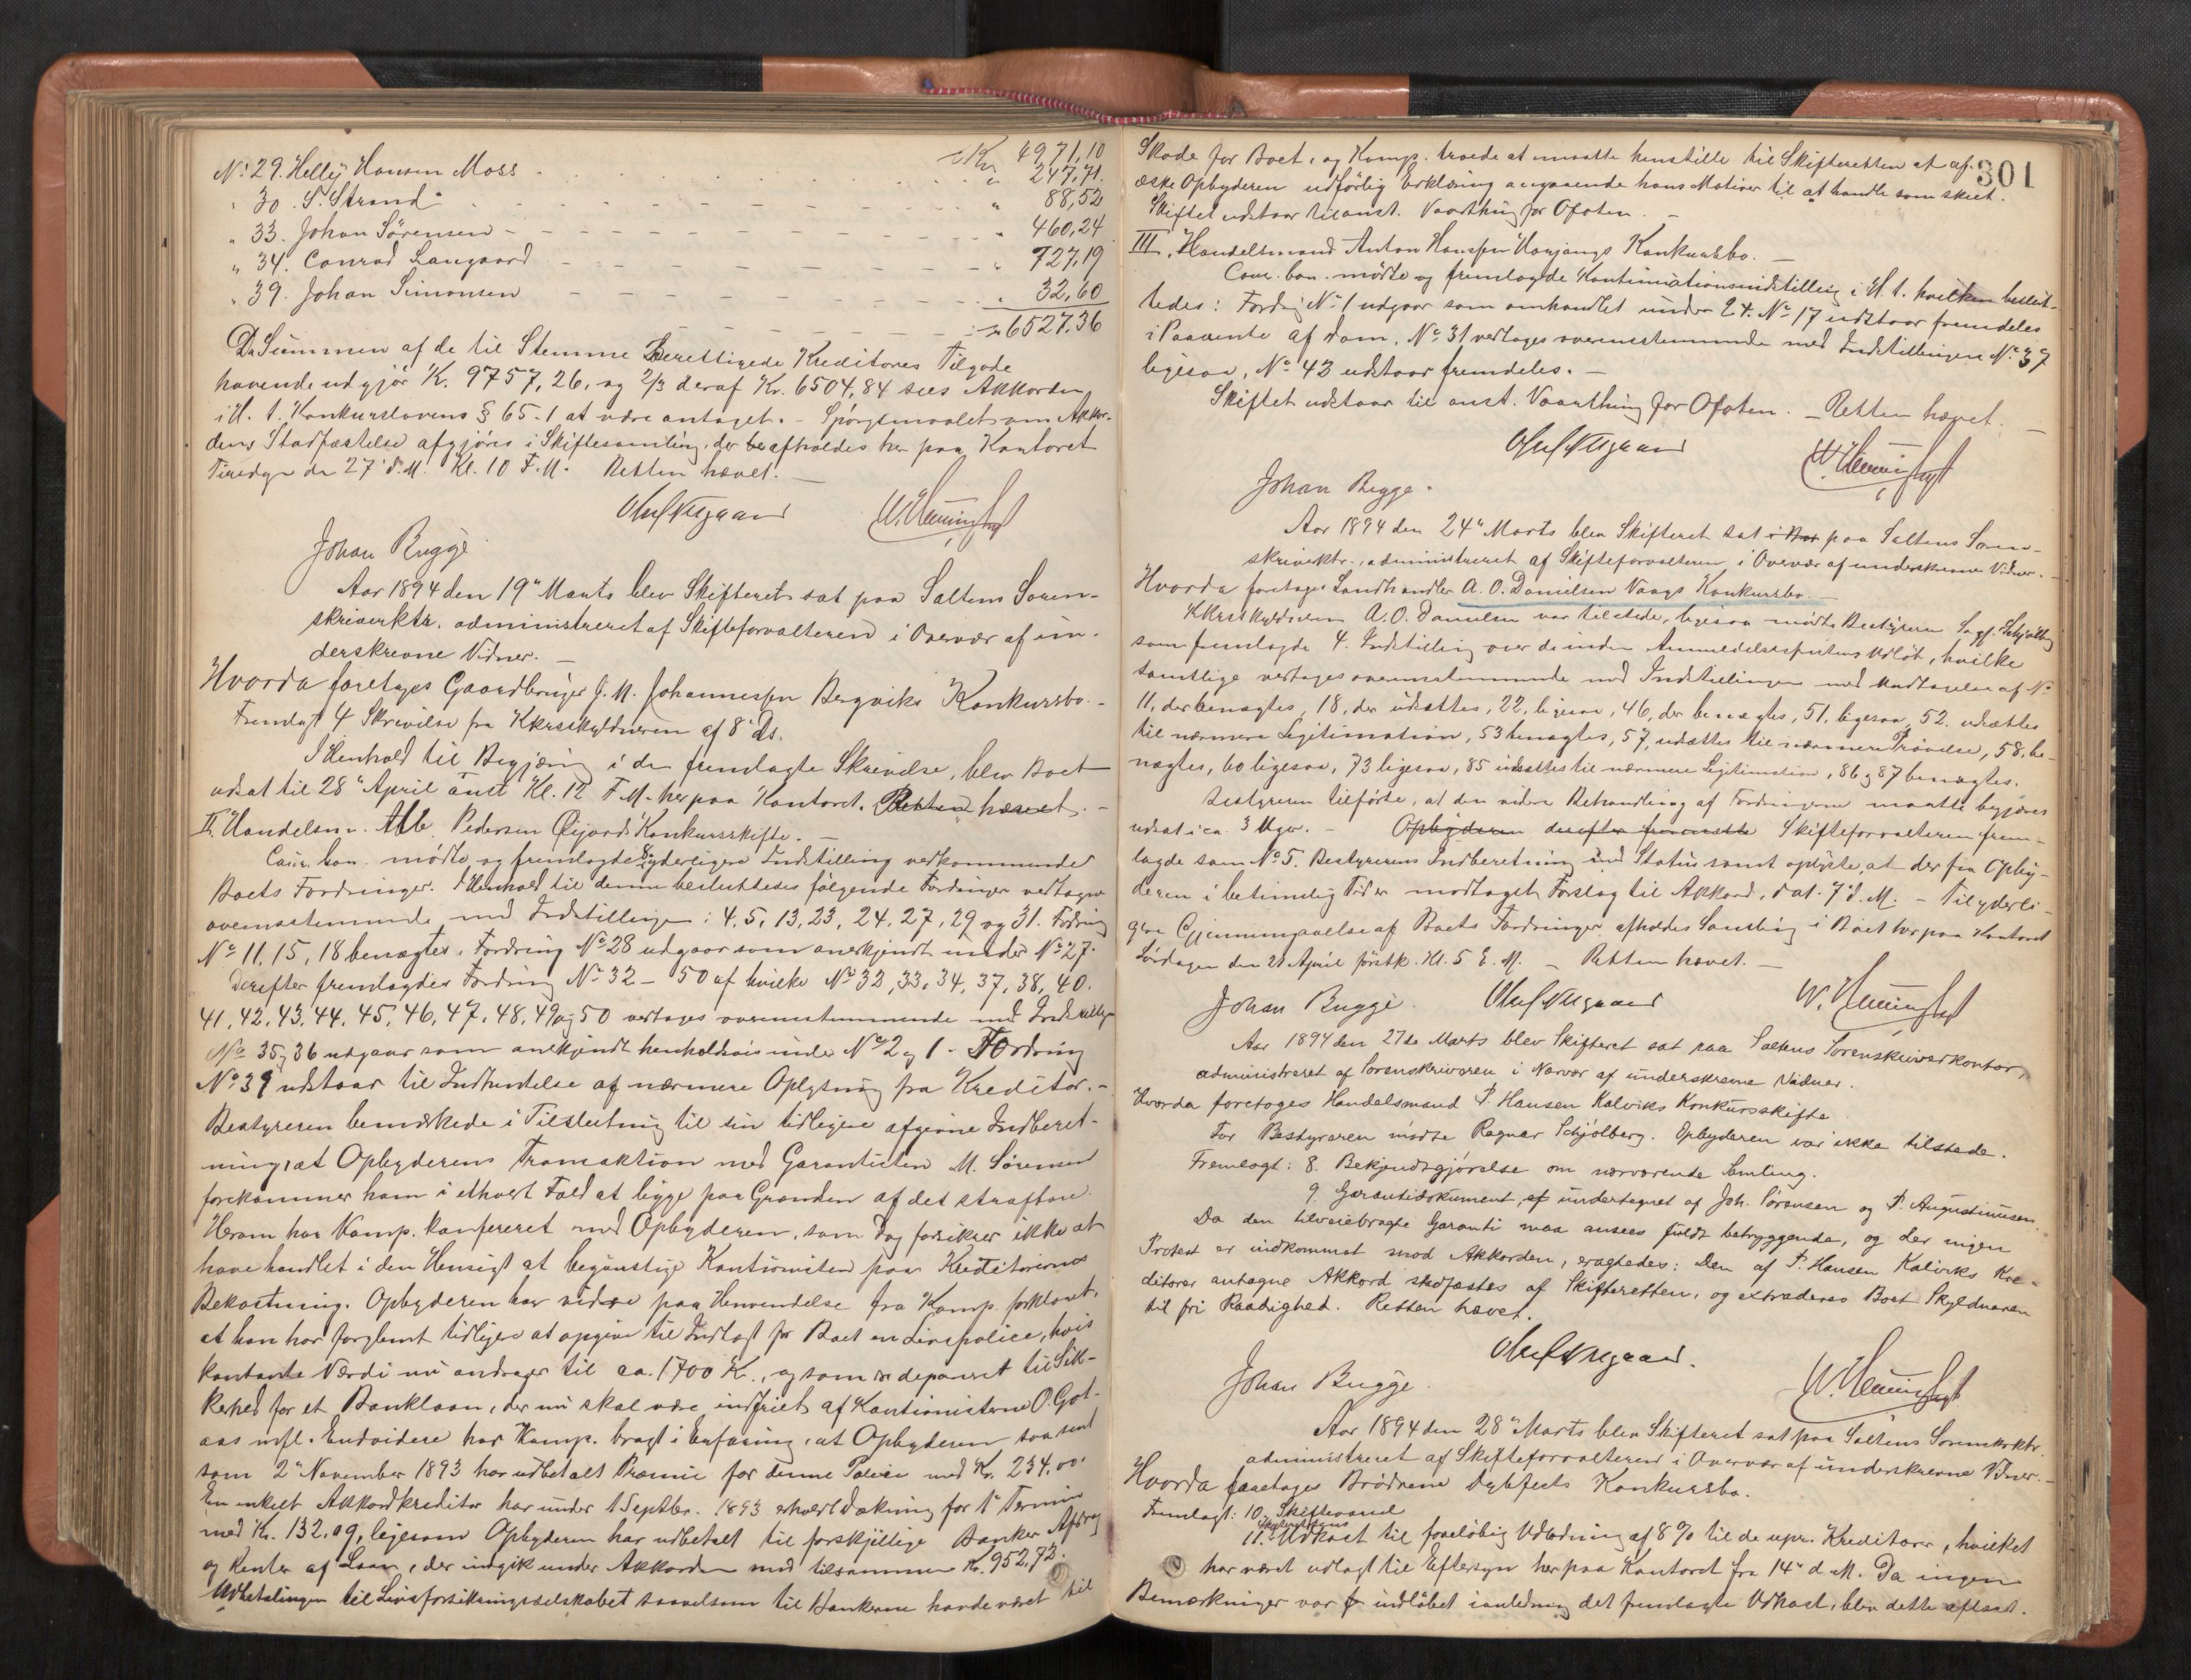 Kr 4971,10
No 29. Helly Hansen Moss " 247,71.
" 30. S. Strand " 88,52
" 33. Johan Sörensen " 460,24
" 34. Conrad Langaard " 727,19
" 39. Johan Simonsen " 32,60
6527,36
Da Summen af de til Stemme berettigede Kreditores Tilgode
havende udgjör Kr. 9757,26, og 2/3 deraf Kr. 6504,84 sees Akkorden
i H. t. Konkurslovens § 65.1 at være antaget. - Spörgsmaalet om Akkor-
dens Stadfæstelse afgjöres i Skiftesamling, der afholdes her paa Kontoret
Tirsdag den 27 d.M. Kl. 10 F.M. Retten hævet. -
Johan Bugge
Aar 1894 den 19" Marts blev Skifteret sat paa Saltens Soren-
skriverktr. administreret af Skifteforvalteren i Overvær af un-
derskrevne Vidner. -
Hvorda foretages Gaardbruger J. M. Johannessen Bergviks Konkursbo. -
Fremlagt 4 Skrivelse fra Kkrsskyldneren af 8' ds.
I Henhold til Begjæring i den fremlagte Skrivelse, blev Boet
udsat til 28" April anst. Kl. 12 F.M. her paa Kontoret. Retten hævet. -
II. Handelsm. Alb. Pedersen Öijords Konkursskifte. -
Cour. ban. mödte og fremlagde 8 yderligere Indstilling vedkommende
Boets Fordringer. I Henhold til denne besluttedes fölgende Fordringer vedtagne
overensstemmende med Indstillingen: 4, 5, 13, 23, 24, 27, 29 og 31. Fordring
No 11, 15, 18 benægtes. Fordring No 28 udgaar som anerkjendt under No 27.
Derefter fremlagdes Fordring No 32 - 50 af hvilke No 32, 33, 34, 37, 38, 40.
41, 42, 43, 44, 45, 46, 47, 48, 49 og 50 vedtages overensstemmende med Indstilling
No 35 og 36 udgaar som anerkjendt henholdsvis under No 2 og 1. - Fordring
No 39 udstaar til Indhentelse af nærmere Oplysning fra Kreditor. -
Bestyreren bemærkede i Tilslutning til sin tidligere afgivne Indberet-
ning, at Opbyderens Transaktion med Garantisten M. Sörensen
forekommer ham i ethvert Fald at ligge paa Grændsen af det strafbare.
Herom har Komp. konfereret med Opbyderen, som dog forsikrer ikke at
have handlet i den Hensigt at begunstige Kautionisten paa Kreditorernes
Bekostning. Opbyderen har videre paa Henvendelse fra Komp. forklaret,
at han har forglemt tidligere at opgive til Indtægt for Boet en Livspolice, hvis
kontante Værdi nu andrager til ca. 1700 Kr., og som er deponeret til Sik-
kerhed for et Banklaan, der nu skal være indfriet af Kautionisterne O. Got-
aas mfl. Endvidere har Komp. bragt i Erfaring, at Opbyderen saa sent
som 2" November 1893 har udbetalt Præmie for denne Police med Kr. 234,00.
En enkelt Akkordkreditor har under 1 Septbr. 1893 erholdt Dækning for 1ste Termin
med Kr. 132,09, ligesom Opbyderen har udbetalt til forskjellige Banker Afdrag
og Renter af Laan, der indgik under Akkorden med tilsammen Kr. 952,72.
Udbetalingen til Livsforsikringsselskabet saavelsom til Bankerne havde været til
301
Skade for Boet, og Komp. troede at maatte henstille til Skifteretten at af-
æske Opbyderen udförlig Erklæring angaaende hans Motiver til at handle som skeet.
Skiftet udstaar til anst. Vaarthing for Ofoten. -
III. Handelsmand Anton Hansen Harjangs Konkursbo. -
Cour. ban. mödte og fremlagde Kontinuationsindstilling i H. t. hvilken beslut-
tedes: Fordring No 1 udgaar som omhandlet under 24. No 17 udstaar fremdeles
i Paavente af Dom. No 31 vedtages overensstemmende med Indstillingen No 37
ligesaa, No 43 udstaar fremdeles. -
Skiftet udstaar til anst. Vaarthing for Ofoten. - Retten hævet. -
Johan Bugge.
Aar 1894 den 24" Marts blev Skifteret sat paa Saltens Soren-
skriverktr., administreret af Skifteforvalteren i Overvær af underskrevne Vidner. -
Hvorda foretages Landhandler A. O. Danielsen Vaags Konkursbo. -
Kkrsskyldneren A. O. Danielsen var tilstede, ligesaa mödte Bestyreren Sagf. Schjölberg
som fremlagde 4. Indstilling over de inden Anmeldelsesfristens Udlöb, hvilke
samtlige vedtages overensstemmende med Indstillingen med Undtagelse af No
11, der benægtes, 18, der udsættes, 22, ligesaa, 46, der benægtes, 51, ligesaa, 52. udsættes
til nærmere Legitimation, 53 benægtes, 57, udsættes til nærmere Prövelse, 58, be-
nægtes, 60 ligesaa, 73 ligesaa, 85 udsættes til nærmere Legitimation, 86 og 87 benægtes.
Bestyreren tilförte, at den videre Behandling af Fordringerne maatte begjæres
udsat i ca. 3 Uger. - Opbyderen derefter fremsatte Skifteforvalteren frem-
lagde som No 5. Bestyrerens Indberetning med Status samt oplyste, at der fra Opby-
deren i betimelig Tid er modtaget Forslag til Akkord, dat. 7' d.M. - Til yderli-
gere Gjennemgaaelse af Boets Fordringer afholdes Samling i Boet her paa Kontoret
Lördagen den 21 April förstk. Kl. 5 E.M. - Retten hævet. -
Johan Bugge.
Aar 1894 den 27de Marts blev Skifteret sat paa Saltens Sorenskriverkontor,
administreret af Sorenskriveren i Nærvær af underskrevne Vidner.
Hvorda foretoges Handelsmand P. Hansen Kalviks Konkursskifte.
For Bestyreren mödte Ragnar Schjölberg. Opbyderen var ikke tilstede.
Fremlagt: 8. Bekjendtgjörelse om nærværende Samling.
9. Garantidokument, af undertegnet af Joh. Sörensen og P. Augustinussen.
Da den tilveiebragte Garanti maa ansees fuldt betryggende, og der ingen
Protest er indkommet mod Akkorden, eragtedes: Den af P. Hansen Kalviks Kre-
ditorer antagne Akkord stadfæstes af Skifteretten, og extraderes Boet Skyldneren
til fri Raadighed. Retten hævet.
Johan Bugge.
Aar 1894 den 28" Marts blev Skifteret sat paa Saltens Sorenskrktr.
administreret af Skifteforvalteren i Overvær af underskrevne Vidner. -
Hvorda foretages Brödrene Dybfests Konkursbo.
Fremlagt: 10. Skiftevarsel
11. Udkast til foreløbig Udlodning af 8 % til de upr. Kreditorer, hvilket
har været udlagt til Eftersyn her paa Kontoret fra 14" d.M. Da ingen
Bemærkninger var indløbet i anledning det fremlagte Udkast, blev dette oplæst.